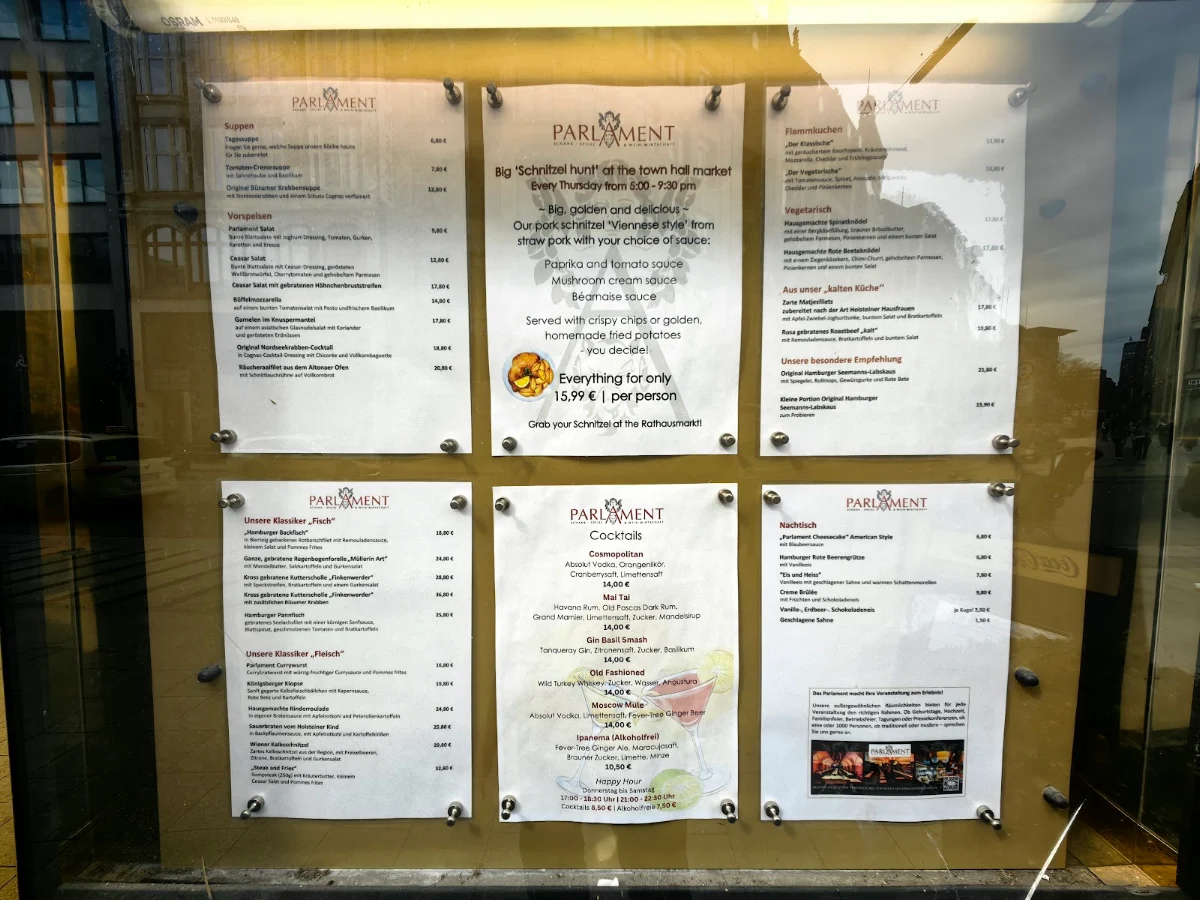 PARLAMENT
SCHANK - SPEISE & WEIN-WIRTSCHAFT
Suppen
Tagessuppe 6,80 €
Fragen Sie gerne, welche Suppe unsere Küche heute
für Sie zubereitet
Tomaten-Cremesuppe 7,80 €
mit Sahnehaube und Basilikum
Original Büsumer Krabbensuppe 12,80 €
mit Nordseekrabben und einem Schuss Cognac verfeinert
Vorspeisen
Parlament Salat 9,80 €
Bunte Blattsalate mit Joghurt-Dressing, Tomaten, Gurken,
Karotten und Kresse
Ceasar Salat 12,80 €
Bunte Blattsalate mit Ceasar-Dressing, gerösteten
Weißbrotwürfel, Cherrytomaten und gehobeltem Parmesan
Ceasar Salat mit gebratenen Hähnchenbruststreifen 17,80 €
Büffelmozzarella 14,80 €
auf einem bunten Tomatensalat mit Pesto und frischem Basilikum
Garnelen im Knuspermantel 17,80 €
auf einem asiatischen Glasnudelsalat mit Koriander
und gerösteten Erdnüssen
Original Nordseekrabben-Cocktail 18,80 €
in Cognac-Cocktail-Dressing mit Chicorée und Vollkornbaguette
Räucheraalfilet aus dem Altonaer Ofen 20,80 €
mit Schnittlauchrührei auf Vollkornbrot
PARLAMENT
SCHANK - SPEISE & WEIN-WIRTSCHAFT
Big 'Schnitzel hunt' at the town hall market
Every Thursday from 5:00 - 9:30 pm
~ Big, golden and delicious ~
Our pork schnitzel 'Viennese style' from
straw pork with your choice of sauce:
Paprika and tomato sauce
Mushroom cream sauce
Béarnaise sauce
Served with crispy chips or golden,
homemade fried potatoes
- you decide!
Everything for only
15,99 € | per person
Grab your Schnitzel at the Rathausmarkt!
PARLAMENT
Flammkuchen
„Der Klassische"
mit geräuchertem Bauchspeck, Kräuterschmand,
Mozzarella, Cheddar und Frühlingslauch
„Der Vegetarische"
mit Tomatensauce, Spinat, Avocado,
Cheddar und Pinienkernen
Vegetarisch
Hausgemachte Spinatknödel 17,80 €
mit einer Bergkäsefüllung, brauner Bröselbutter,
gehobeltem Parmesan, Pinienkernen und einem bunten Salat
Hausgemachte Rote Beeteknödel 17,80 €
mit einem Ziegenkäsekern, Chimi-Churri, gehobeltem Parmesan,
Pinienkernen und einem bunten Salat
Aus unser „kalten Küche"
Zarte Matjesfilets 17,80 €
zubereitet nach der Art Holsteiner Hausfrauen
mit Apfel-Zwiebel-Joghurttunke, buntem Salat und Bratkartoffeln
Rosa gebratenes Roastbeef „kalt" 19,90 €
mit Remouladensauce, Bratkartoffeln und buntem Salat
Unsere besondere Empfehlung
Original Hamburger Seemanns-Labskaus 21,80 €
mit Spiegelei, Rollmops, Gewürzgurke und Rote Bete
Kleine Portion Original Hamburger
Seemanns-Labskaus 15,90 €
zum Probieren
PARLAMENT
Unsere Klassiker „Fisch"
„Hamburger Backfisch" 18,80 €
in Bierteig gebackenes Rotbarschfilet mit Remouladensauce,
kleinem Salat und Pommes Frites
Ganze, gebratene Regenbogenforelle „Müllerin Art" 24,80 €
mit Mandelbutter, Salzkartoffeln und Gurkensalat
Kross gebratene Kutterscholle „Finkenwerder" 28,80 €
mit Speckstreifen, Bratkartoffeln und einem Gurkensalat
Kross gebratene Kutterscholle „Finkenwerder" 36,80 €
mit zusätzlichen Büsumer Krabben
Hamburger Pannfisch 25,80 €
gebratenes Seelachsfilet mit einer körnigen Senfsauce,
Blattspinat, geschmolzenen Tomaten und Bratkartoffeln
Unsere Klassiker „Fleisch"
Parlament Currywurst 16,80 €
Currybratwurst mit würzig-fruchtiger Currysauce und Pommes frites
Königsberger Klopse 19,80 €
Sanft gegarte Kalbsfleischbällchen mit Kapernsauce,
Rote Bete und Kartoffeln
Hausgemachte Rinderroulade 24,80 €
in eigener Bratensauce mit Apfelrotkohl und Petersilienkartoffeln
Sauerbraten vom Holsteiner Rind 25,80 €
in Backpflaumensauce, mit Apfelrotkohl und Kartoffelklößen
Wiener Kalbsschnitzel 29,80 €
Zartes Kalbsschnitzel aus der Region, mit Preiselbeeren,
Zitrone, Bratkartoffeln und Gurkensalat
„Steak and Fries" 32,80 €
Rumpsteak (250g) mit Kräuterbutter, kleinem
Ceasar Salat und Pommes Frites
PARLAMENT
SCHANK - SPEISE & WEIN-WIRTSCHAFT
Cocktails
Cosmopolitan
Absolut Vodka, Orangenlikör,
Cranberrysaft, Limettensaft
14,00 €
Mai Tai
Havana Rum, Old Pascas Dark Rum,
Grand Marnier, Limettensaft, Zucker, Mandelsirup
14,00 €
Gin Basil Smash
Tanqueray Gin, Zitronensaft, Zucker, Basilikum
14,00 €
Old Fashioned
Wild Turkey Whiskey, Zucker, Wasser, Angustura
14,00 €
Moscow Mule
Absolut Vodka, Limettensaft, Fever-Tree Ginger Beer
14,00 €
Ipanema (Alkoholfrei)
Fever-Tree Ginger Ale, Maracujasaft,
Brauner Zucker, Limette, Minze
10,50 €
Happy Hour
Donnerstag bis Samstag
17:00 - 18:30 Uhr | 21:00 - 22:30 Uhr
Cocktails 8,50 € | Alkoholfreie 7,50 €
PARLAMENT
Nachtisch
„Parlament Cheesecake" American Style 6,80 €
mit Blaubeersauce
Hamburger Rote Beerengrütze 6,80 €
mit Vanilleeis
"Eis und Heiss" 7,80 €
Vanilleeis mit geschlagener Sahne und warmen Schattenmorellen
Creme Brûlée 9,80 €
mit Früchten und Schokoladeneis
Vanille-, Erdbeer-, Schokoladeneis je Kugel 2,50 €
Geschlagene Sahne 1,50 €
Das Parlament macht Ihre Veranstaltung zum Erlebnis!
Unsere außergewöhnlichen Räumlichkeiten bieten für jede
Veranstaltung den richtigen Rahmen. Ob Geburtstage, Hochzeit,
Familienfeier, Betriebsfeier, Tagungen oder Pressekonferenzen, ob
eine oder 1000 Personen, ob traditionell oder modern – sprechen
Sie uns gerne an.
PARLAMENT